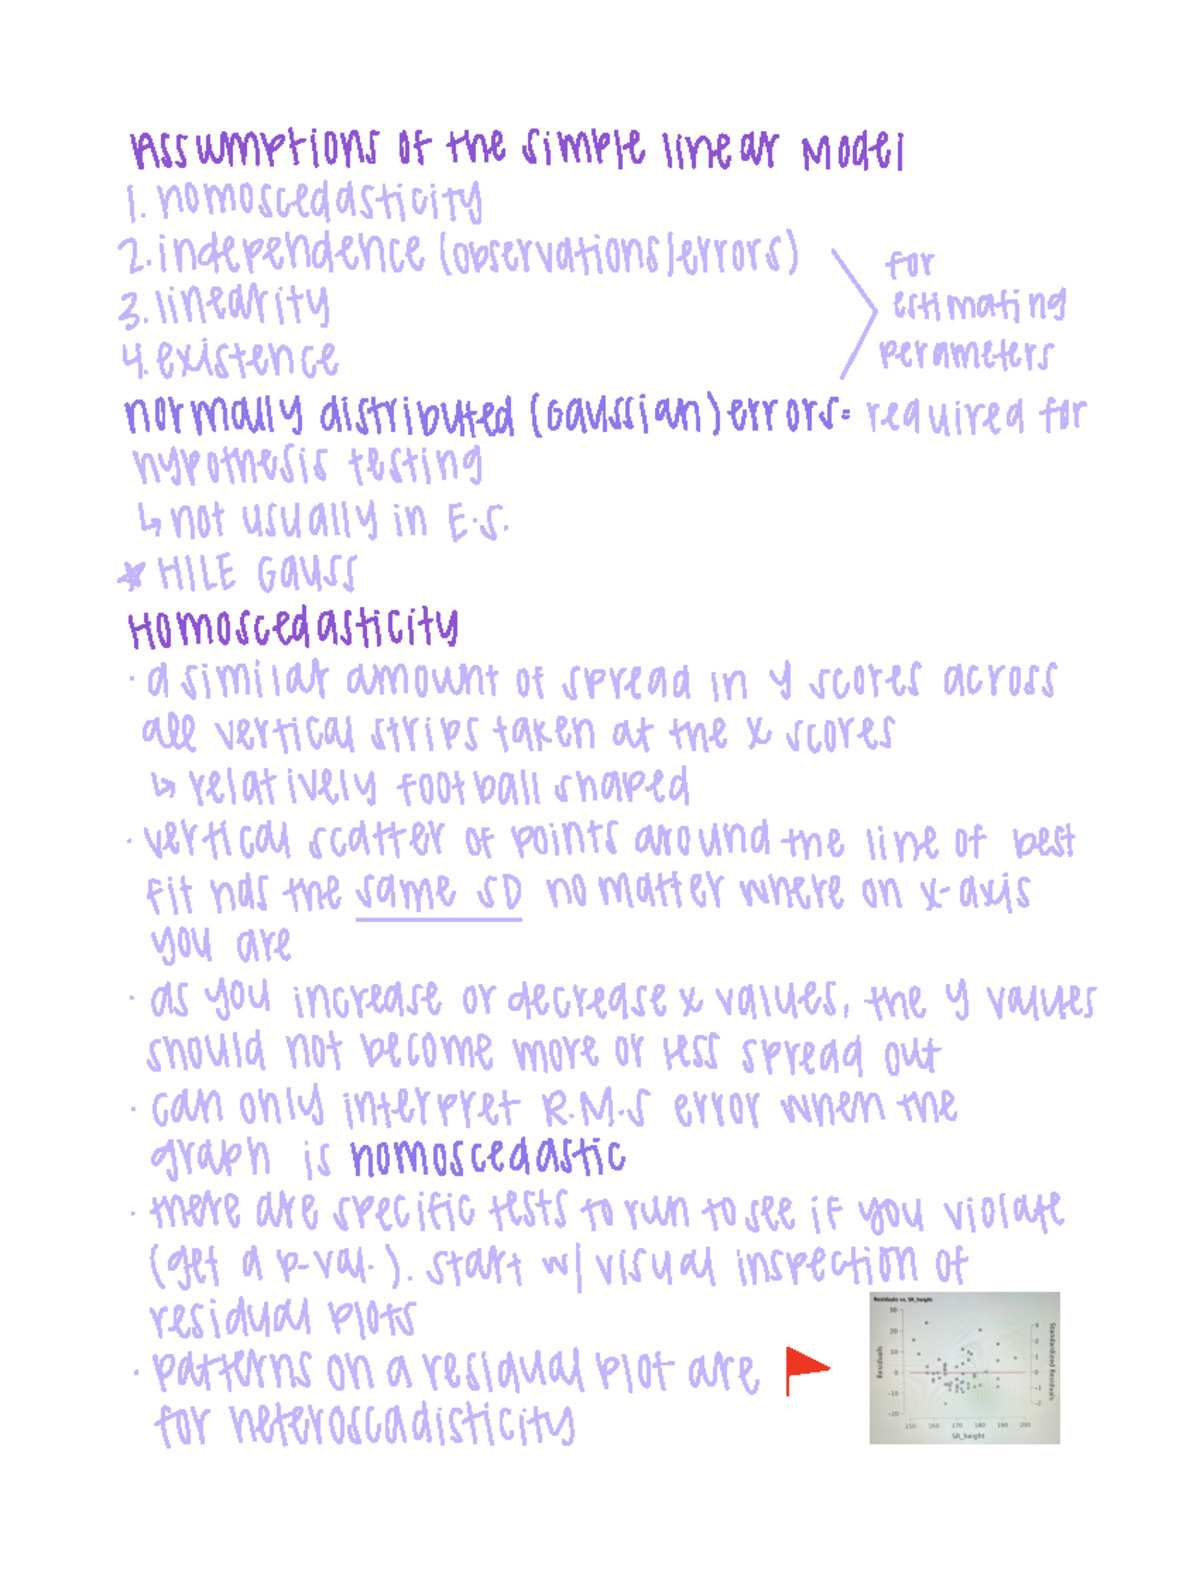 Assumptions of the simple linear Model
1. homoscedasticity
2. independence (observations/errors)
3. linearity
4. existence
for
estimating
perameters
normally distributed (Gaussian) errors= required for
hypothesis testing
↳ not usually in E.S.
★ HILE GAUSS
Homoscedasticity
· a similar amount of spread in y scores across
all vertical strips taken at the x scores
↳ relatively football shaped
· vertical scatter of points around the line of best
fit has the same SD no matter where on x-axis
you are
· as you increase or decrease x values, the y values
should not become more or less spread out
· can only interpret R.M.S error when the
graph is homoscedastic
· there are specific tests to run to see if you violate
(get a p-val.). start w/ visual inspection of
residual plots
· patterns on a residual plot are
for heteroscadisticity
Residuals vs. SR_height
Residuals
30
20
10
0
-10
-20
150 160 170 180 190 200
SR_height
3
2
1
0
-1
-2
Standardized Residuals